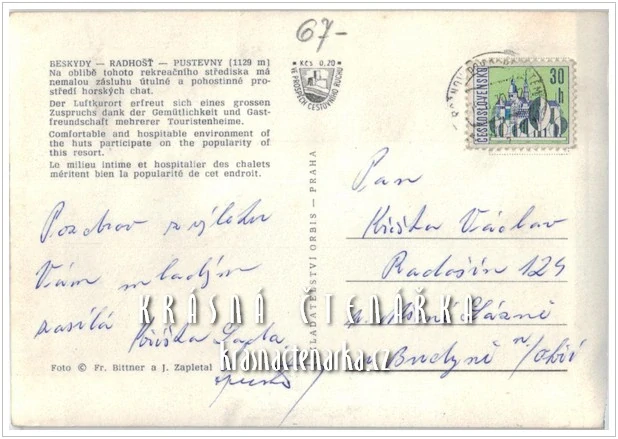 67-
BESKYDY — RADHOŠŤ — PUSTEVNY [1129 m]
Na oblibě tohoto rekreačního střediska má
nemalou zásluhu útulné a pohostinné pro-
středí horských chat.
Der Luftkurort erfreut sich eines grossen
Zuspruchs dank der Gemütlichkeit und Gast-
freundschaft mehrerer Touristenheime.
Comfortable and hospitable environment of
the huts participate on the popularity of
this resort.
Le milieu intime et hospitalier des chalets
méritent bien la popularité de cet endroit.
Kčs 0,20
VE PROSPĚCH CESTOVNÍHO RUCHU
ČESKOSLOVENSKO
30 h
Pozdrav z výletu
Vám mladým
zasílá Křiška
NAKLADATELSTVÍ ORBIS — PRAHA
Pan
Křiška Václav
Radošín 124
Budyně n/Ohří
KRÁSNÁ ČTENÁŘKA
krasnactenarka.cz
Foto © Fr. Bittner a J. Zapletal